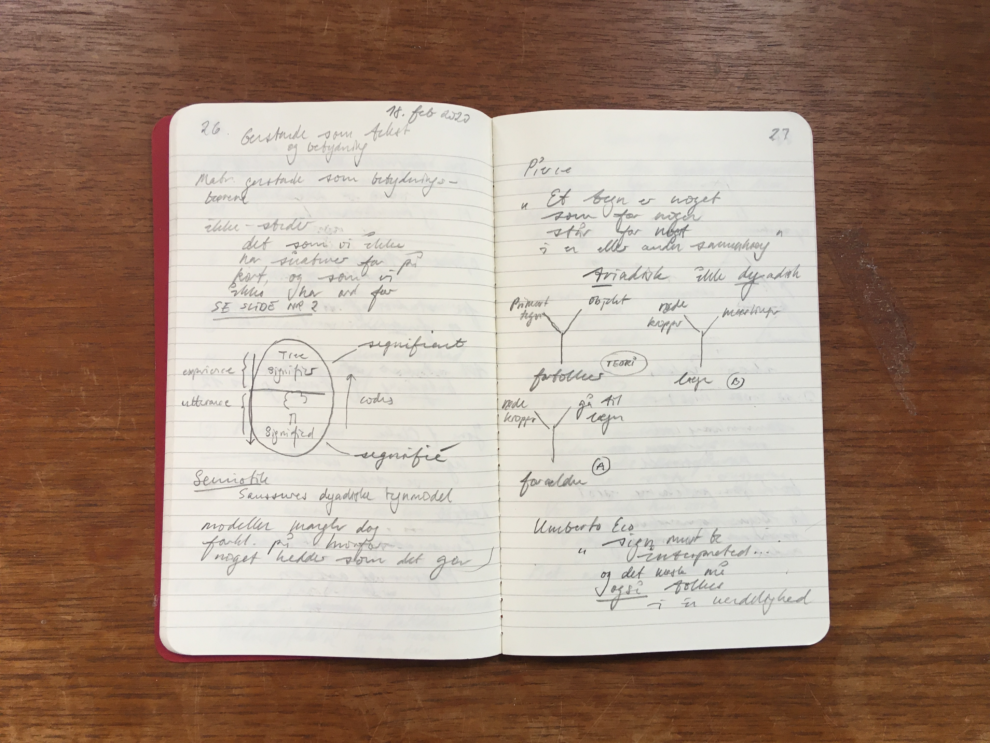 26.
18. feb 2020
Genstande som tekst
og betydning
Matr. genstande som betydnings-
bærere
ikke-steder
det som vi ikke
har signaturer for på
kort, og som vi
ikke har ord for
SE SLIDE NR 2
experience
utterance
Tree
signifier
signified
codes
signifiant
signifié
Semiotik
Saussures dyadiske tegnmodel
modellen mangler dog
forkl. på hvorfor
noget hedder som det gør
27.
Pierce
" Et tegn er noget
som for nogen
står for noget
i en eller anden sammenhæng "
triadisk ikke dyadisk
Primært
tegn
objekt
fortolker
TEORI
røde
knopper
læge
B
røde
knopper
gå til
lægen
forældre
A
Umberto Eco
" sign must be
interpreted...
og det kunne må
også tolkes
i en uendelighed